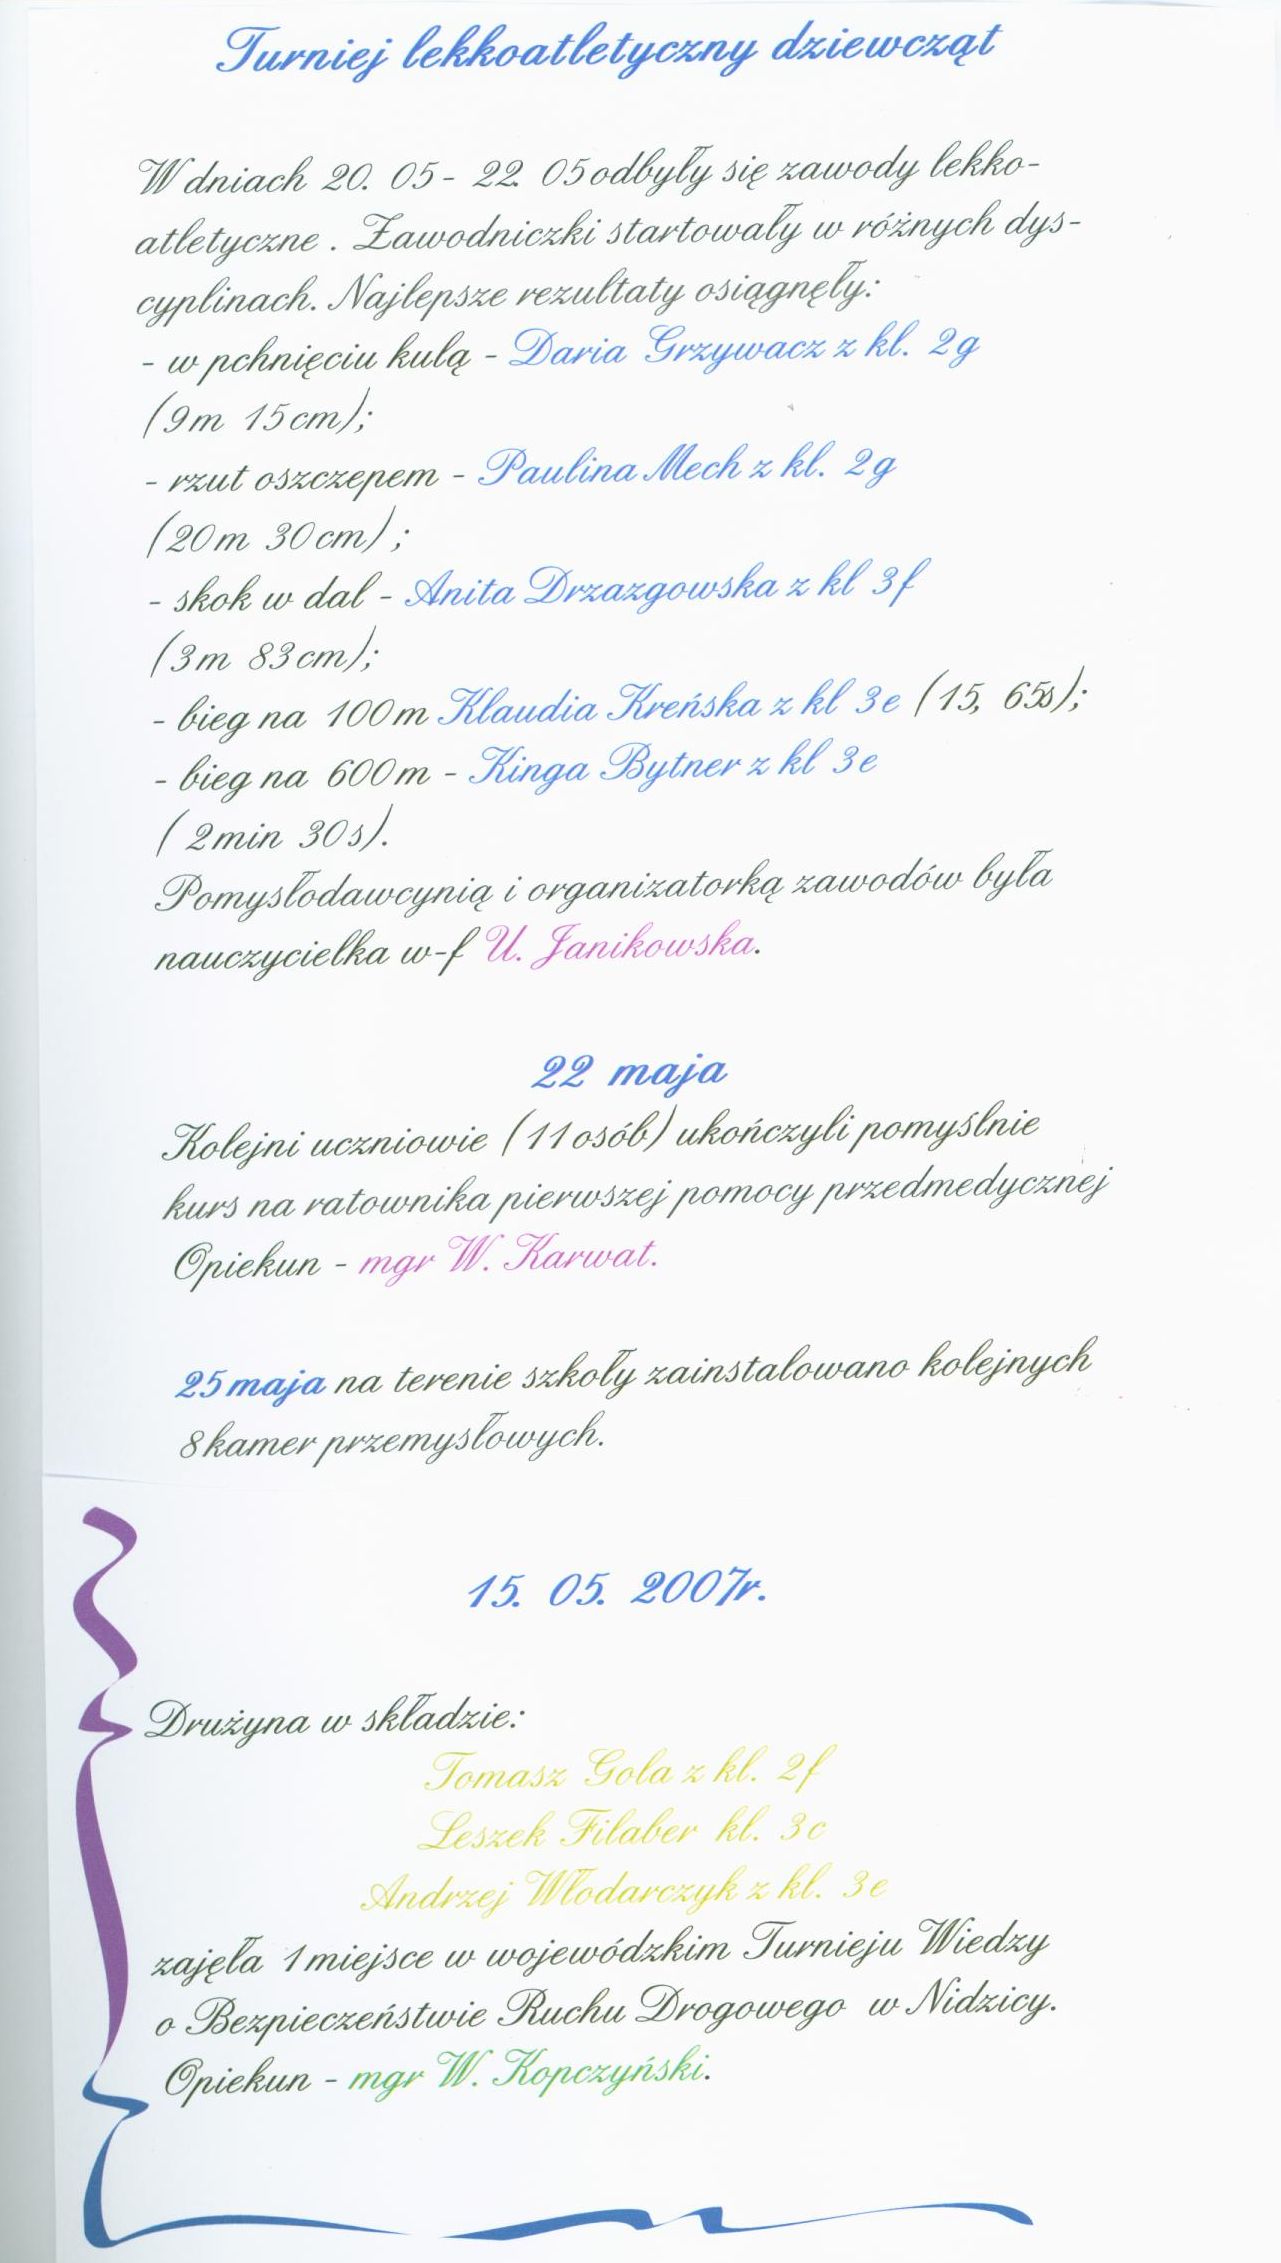 Turniej lekkoatletyczny dziewcząt
W dniach 20. 05 - 22. 05 odbyły się zawody lekko-
atletyczne . Zawodniczki startowały w różnych dys-
cyplinach. Najlepsze rezultaty osiągnęły:
- w pchnięciu kulą - Daria Grzywacz z kl. 2g
(9m 15cm);
- rzut oszczepem - Paulina Mech z kl. 2g
(20m 30cm) ;
- skok w dal - Anita Drzazgowska z kl 3f
(3m 83cm);
- bieg na 100m Klaudia Kreńska z kl 3e (15, 65s);
- bieg na 600m - Kinga Bytner z kl 3e
( 2min 30s).
Pomysłodawcynią i organizatorką zawodów była
nauczycielka w-f U. Janikowska.
22 maja
Kolejni uczniowie (11 osób) ukończyli pomyślnie
kurs na ratownika pierwszej pomocy przedmedycznej
Opiekun - mgr W. Karwat.
25 maja na terenie szkoły zainstalowano kolejnych
8 kamer przemysłowych.
15. 05. 2007r.
Drużyna w składzie:
Tomasz Gola z kl. 2f
Leszek Filaber kl. 3c
Andrzej Włodarczyk z kl. 3e
zajęła 1 miejsce w wojewódzkim Turnieju Wiedzy
o Bezpieczeństwie Ruchu Drogowego w Nidzicy.
Opiekun - mgr W. Kopczyński.